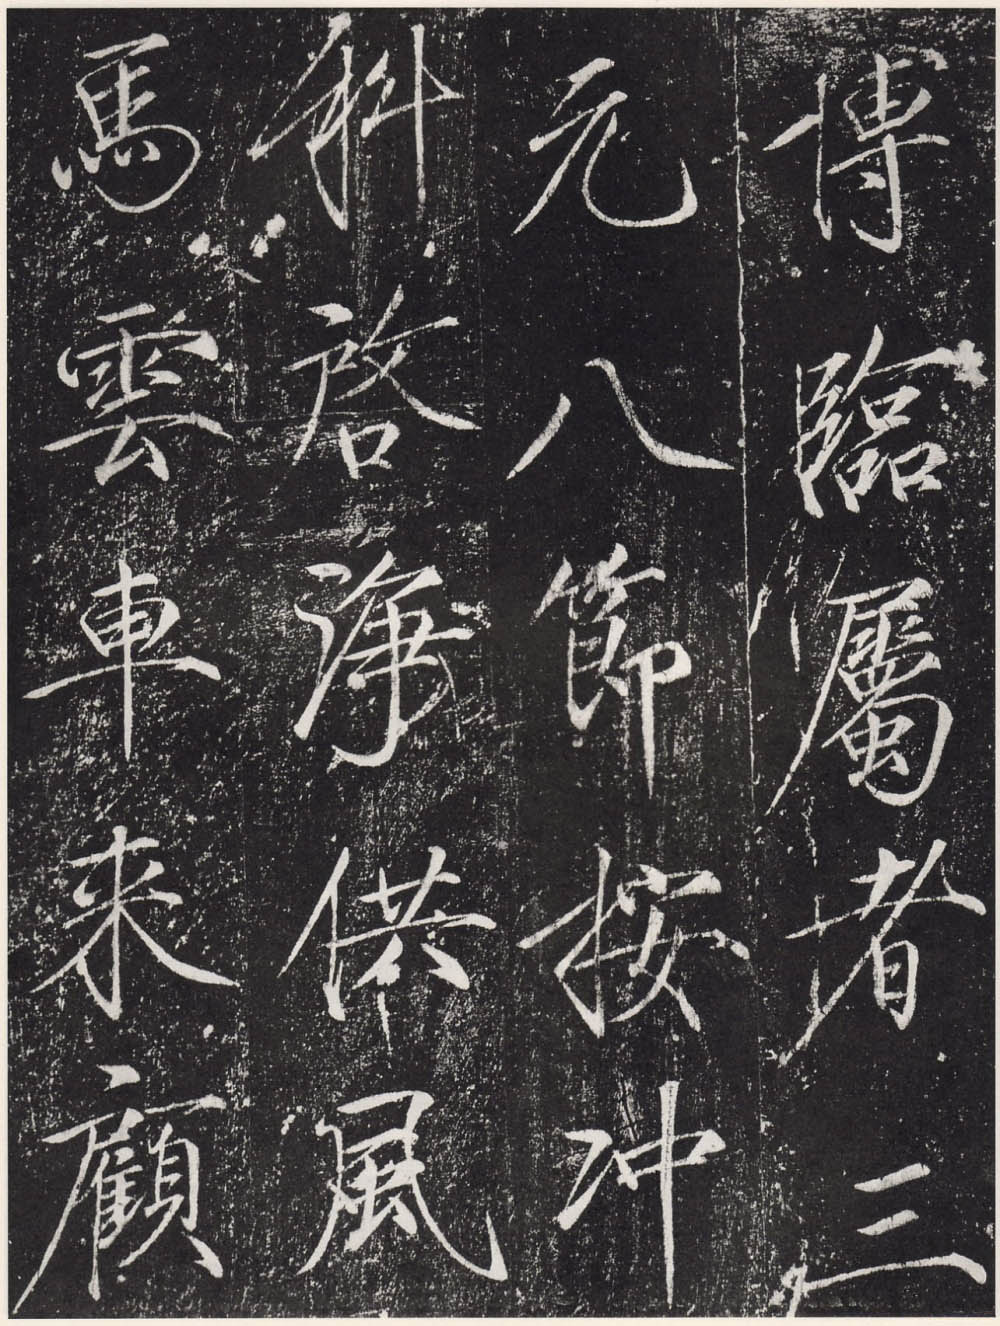 博臨屬者三
元八節按冲
科啓淨供風
馬雲車來顧